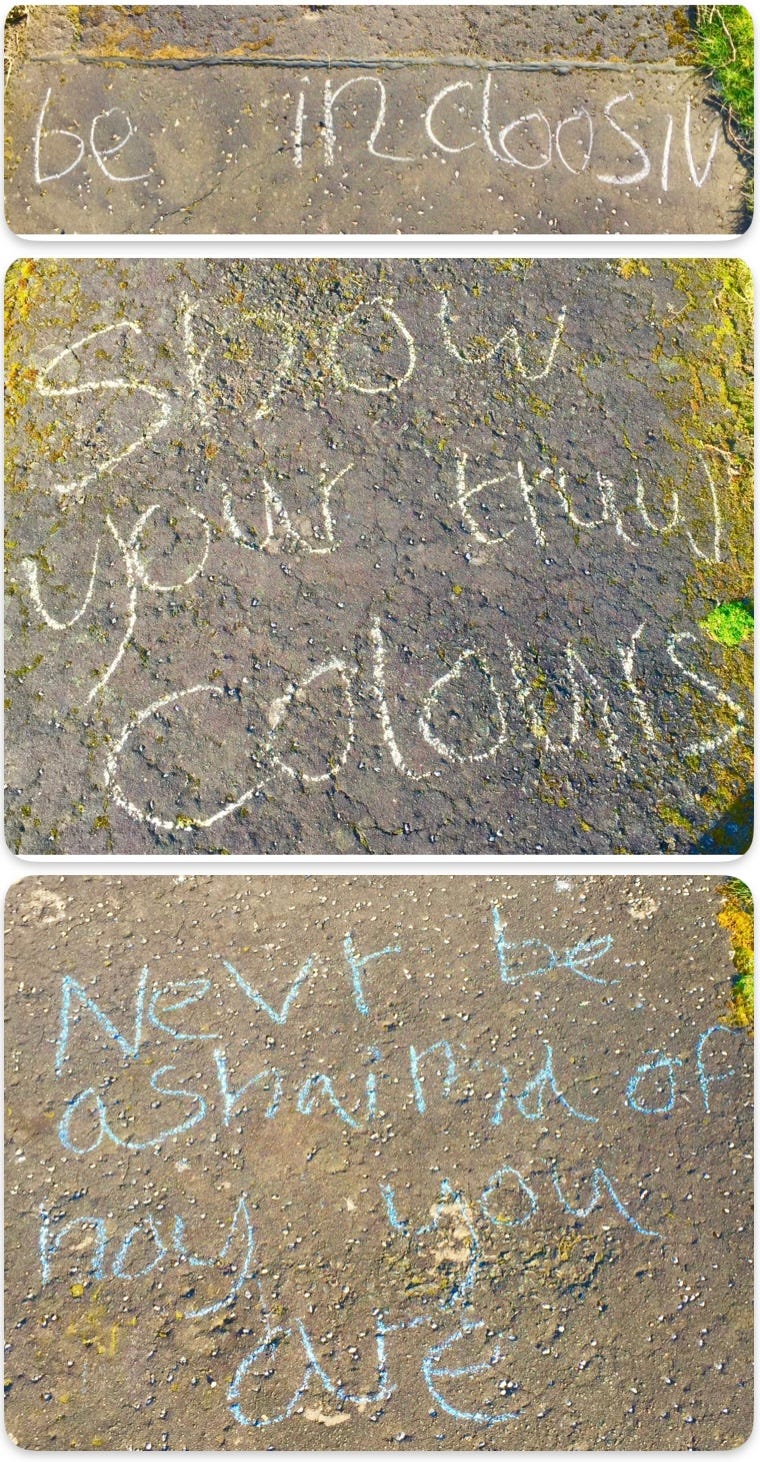 be incloosiv
Show
your truw
colours
Nevr be
ashaimd of
hoy you
are